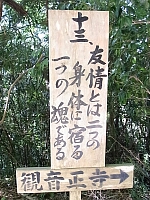 十三
友情とは二つの
身体に宿る
一つの魂である
観音正寺→